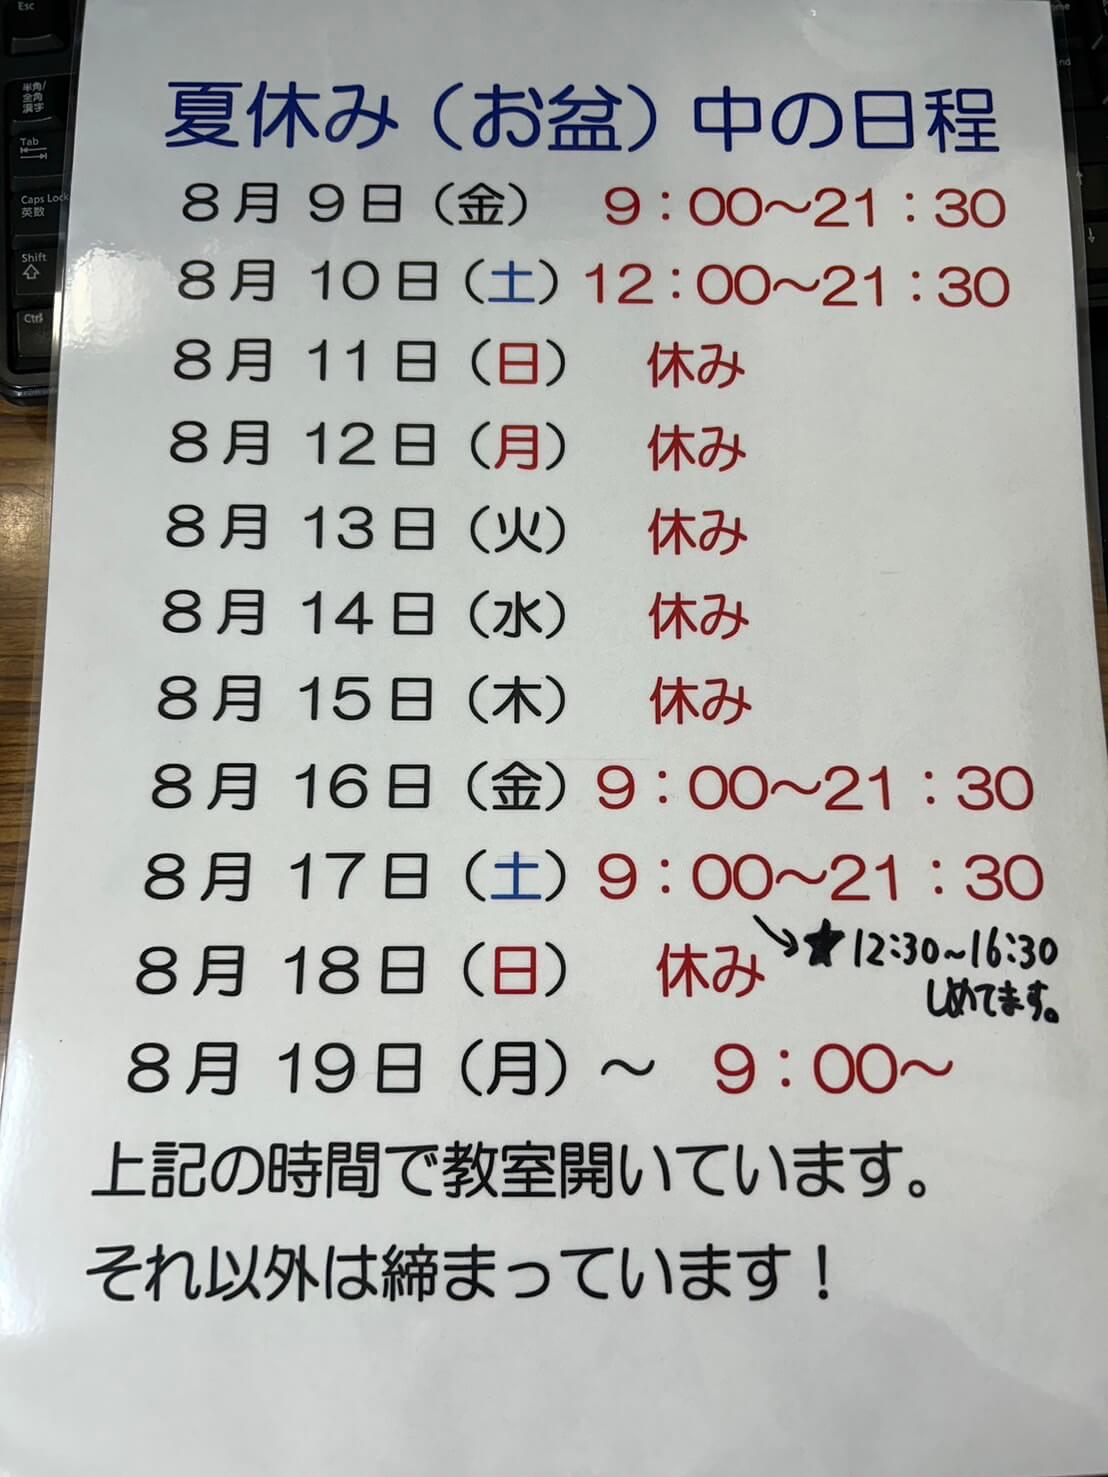 夏休み（お盆）中の日程
8月 9日（金） 9：00～21：30
8月 10日（土）12：00～21：30
8月 11日（日） 休み
8月 12日（月） 休み
8月 13日（火） 休み
8月 14日（水） 休み
8月 15日（木） 休み
8月 16日（金）9：00～21：30
8月 17日（土）9：00～21：30
↘★12:30~16:30
しめてます。
8月 18日（日） 休み
8月 19日（月）～ 9：00～
上記の時間で教室開いています。
それ以外は締まっています！
Esc
半角/
全角
漢字
Tab
Caps Lock
英数
Shift
Ctrl